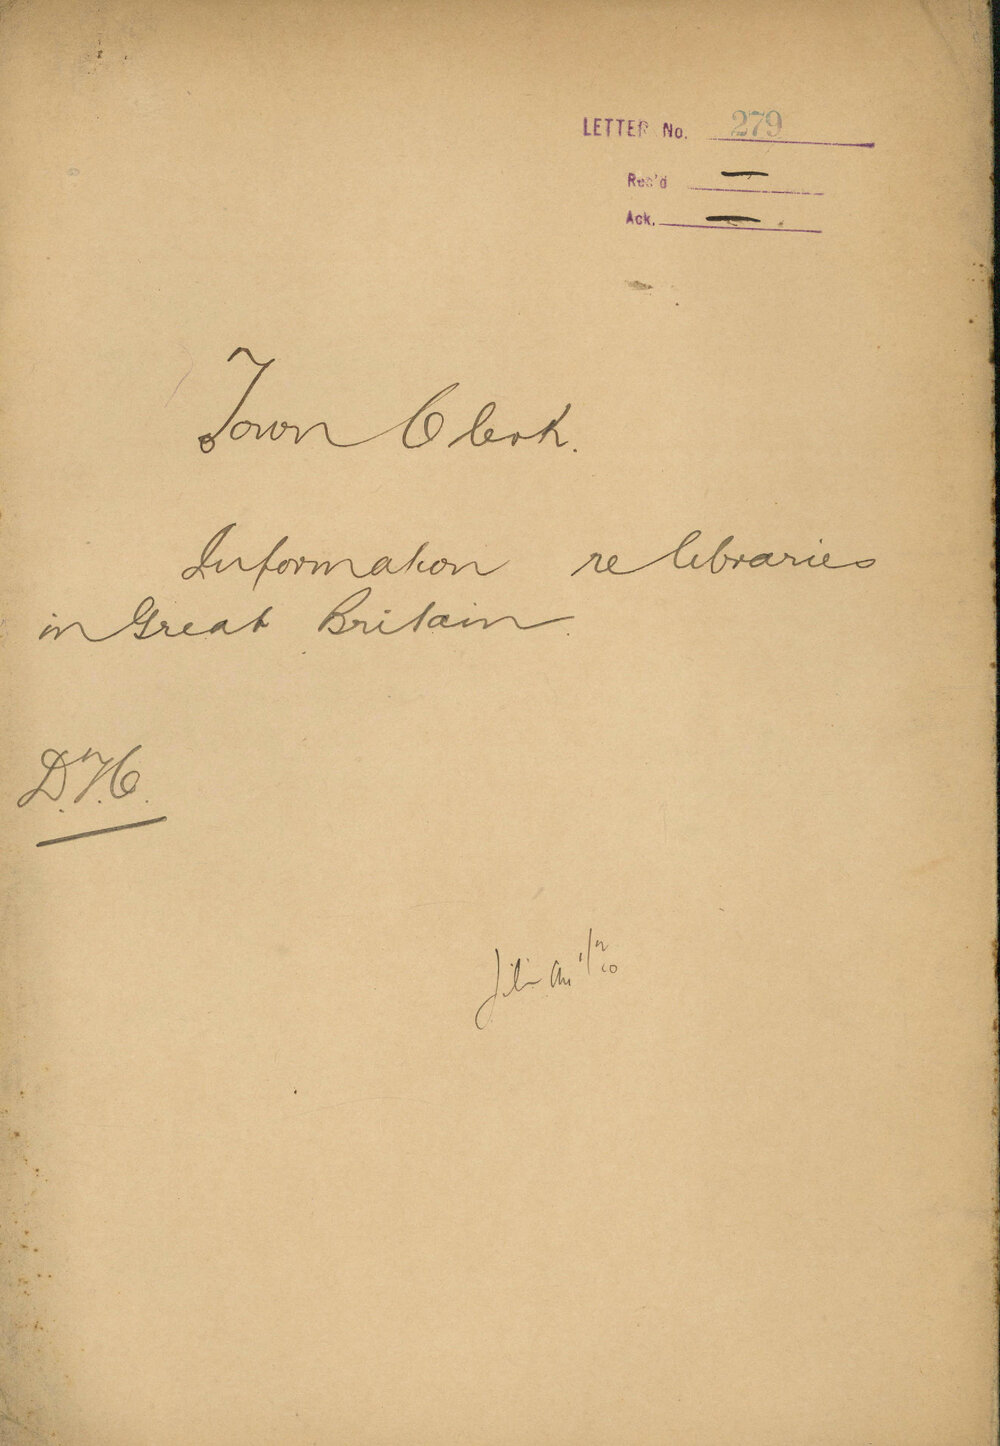 LETTER No. 279
Rec'd —
Ack. —
Town Clerk.
Information re libraries
in Great Britain.